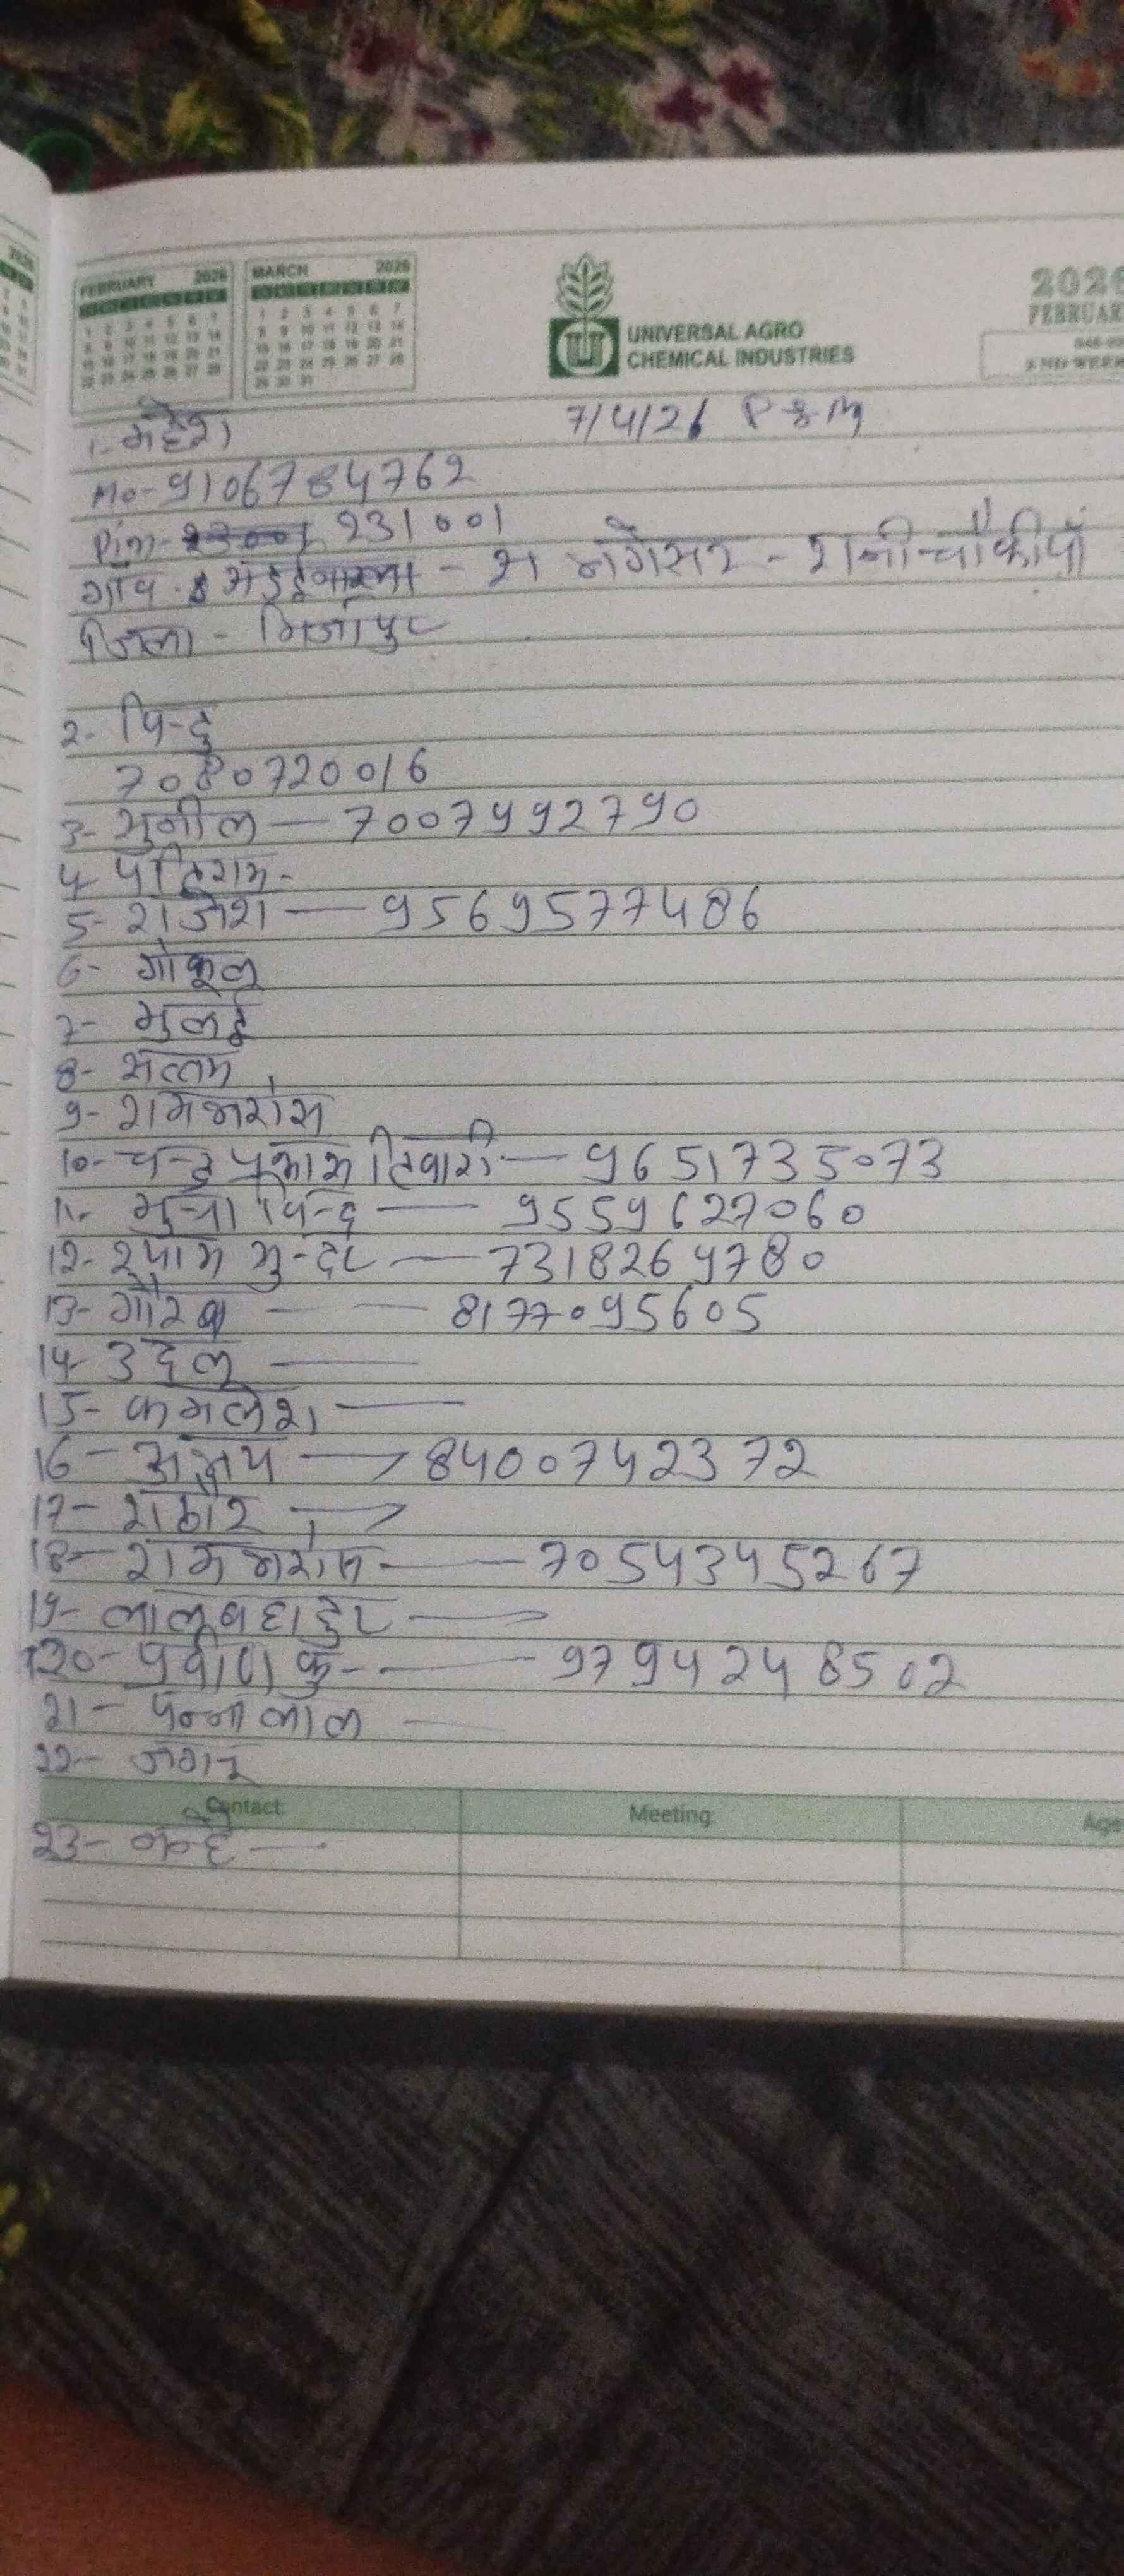 FEBRUARY 2026 MARCH 2026
UNIVERSAL AGRO
CHEMICAL INDUSTRIES
2026
FEBRUAR
1- महेश 7/4/26
Mo- 9106784762
Pin- 231001
गाँव
जिला - मिर्जापुर
2. बिन्दु
7080720016
3- सुनील — 7007992790
4-
5- राजेश — 9569577486
6- गोकुल
7- मुलई
8-
9- रामभरोस
10- चन्द्र प्रकाश तिवारी — 9651735073
11- मुन्ना बिन्द — 9559627060
12- श्याम सुन्दर — 7318269780
13- गौरव — 8177095605
14- उदल —
15- कमलेश —
16- अजय → 8400742372
17- राठौर →
18- रामभरोस — 7054345267
19- लालबहादुर →
20- प्रवीण कु- — 9794248502
21- पन्नालाल —
22-
Contact Meeting Age
23-